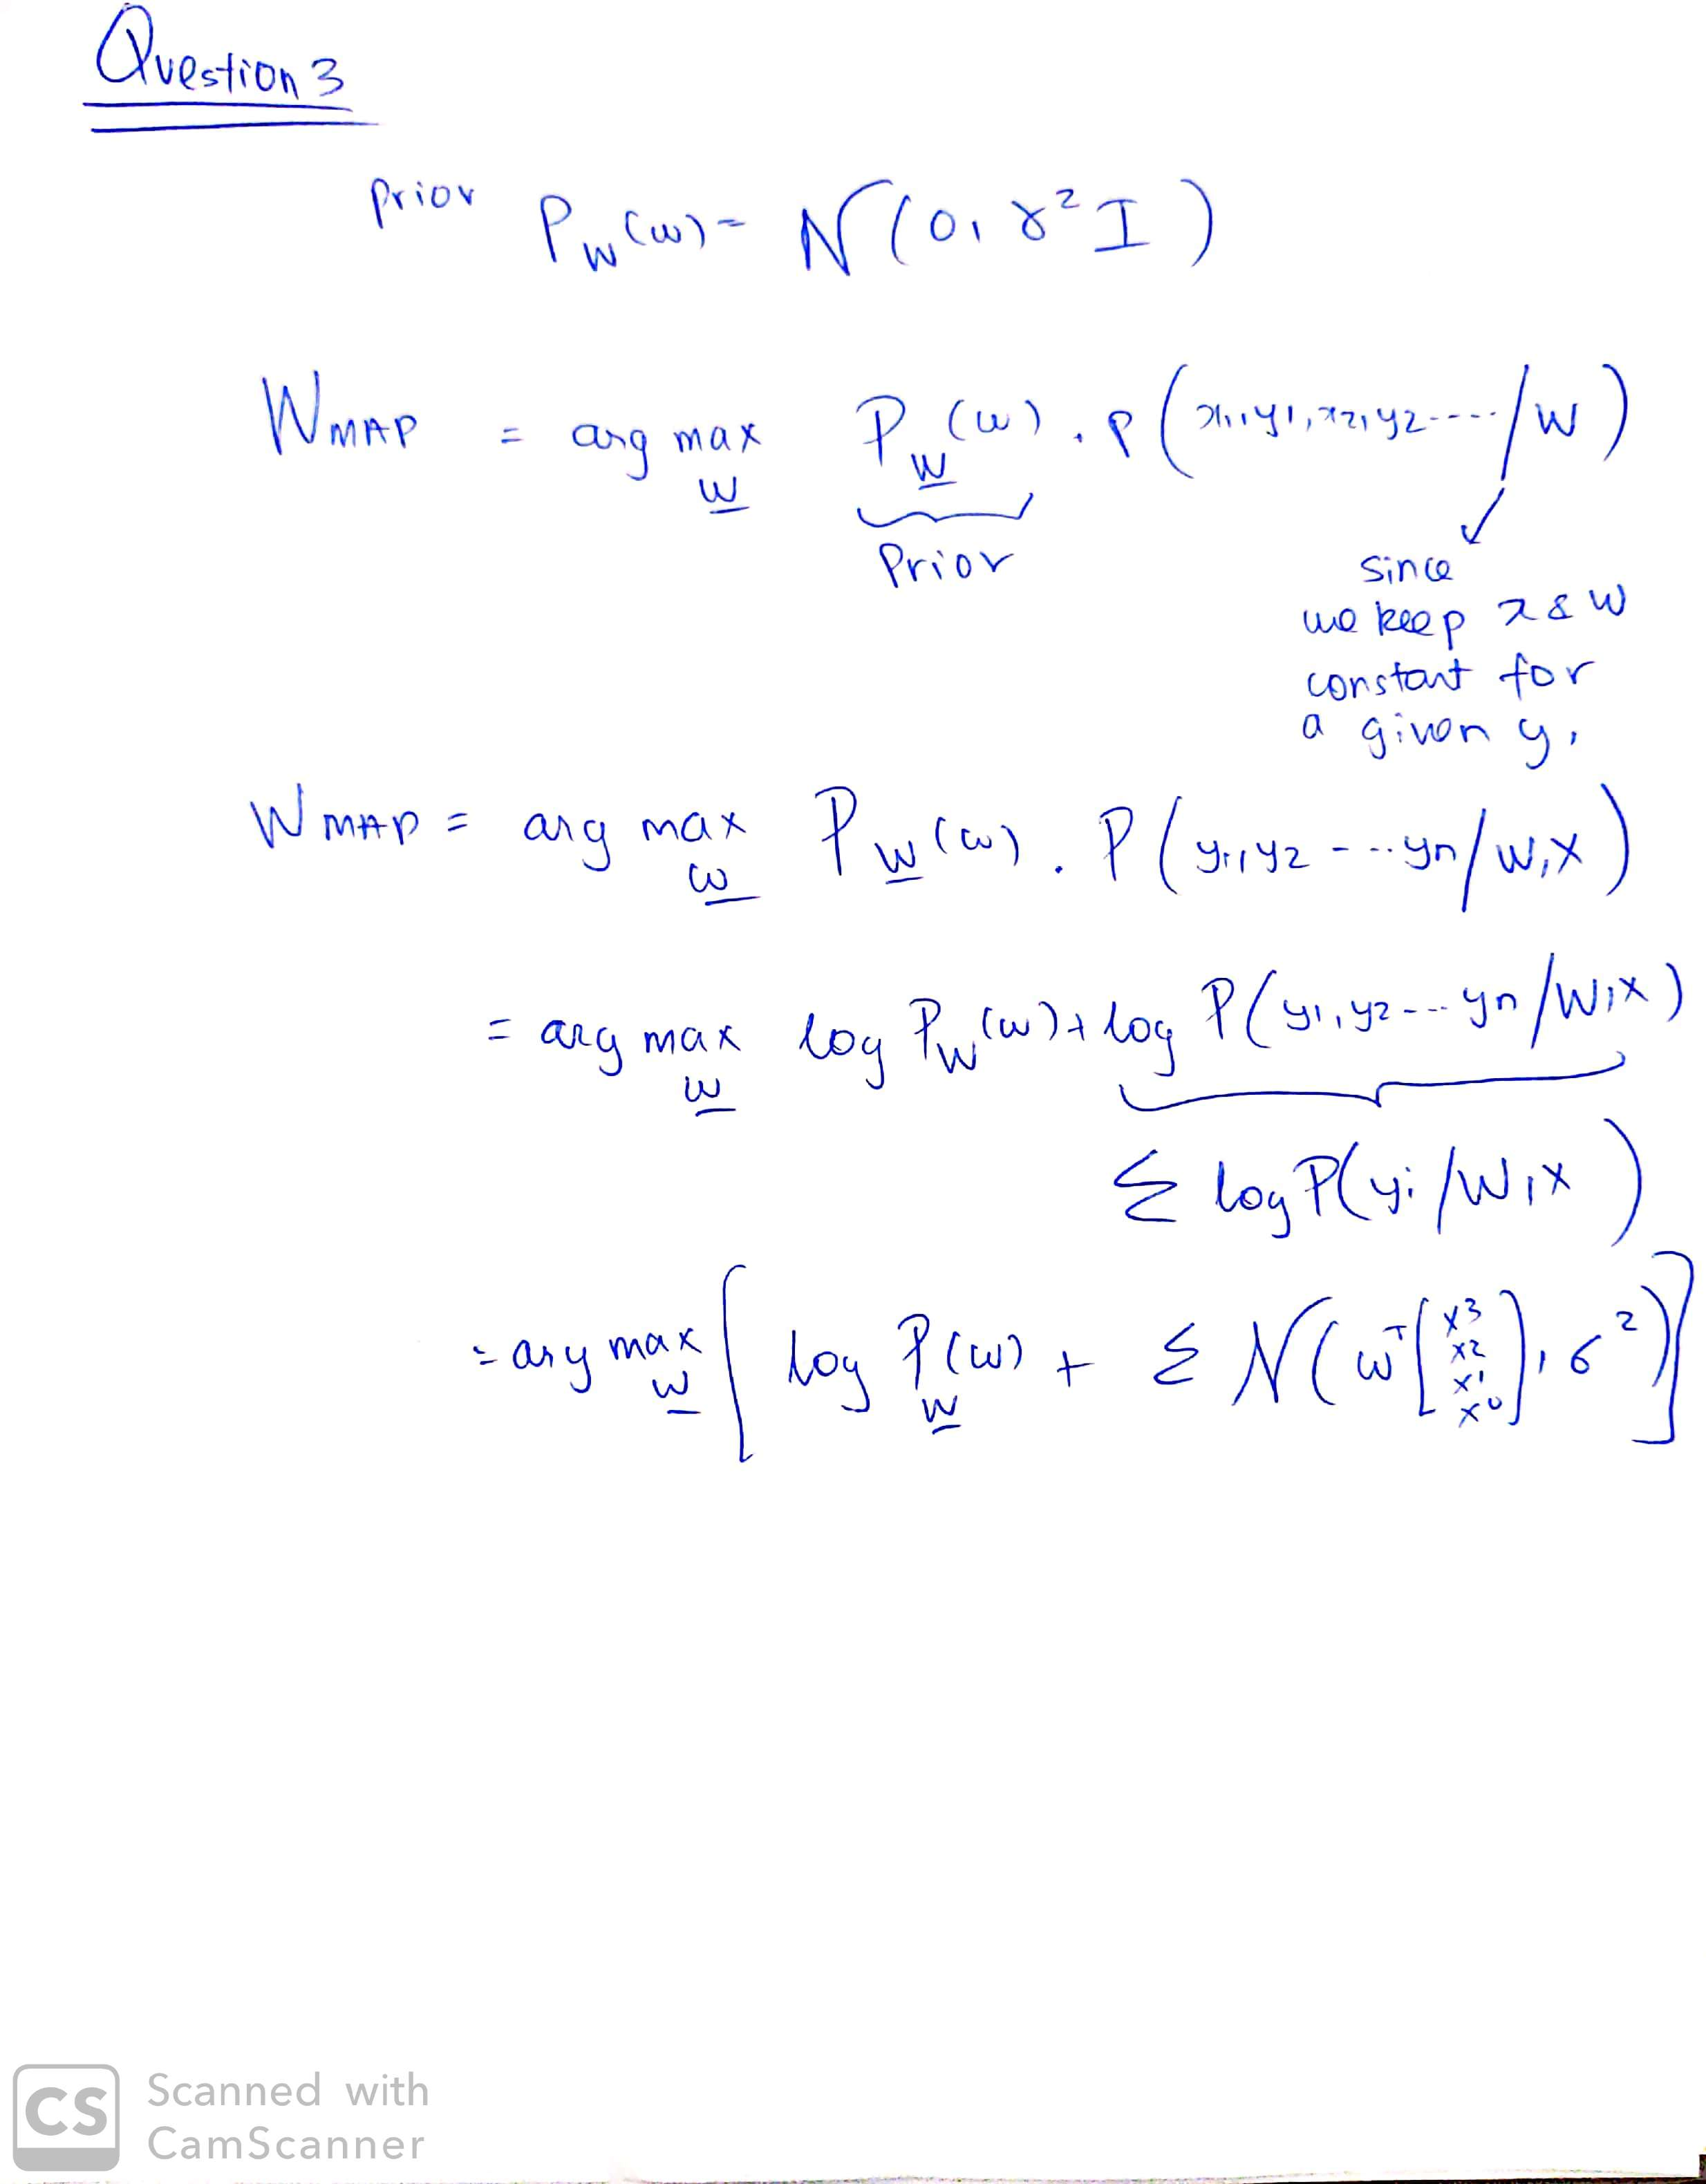 Question 3
Prior P_W(w) = N(0, γ² I)
W_MAP = arg max_w P_W(w) . P(x1,y1,x2,y2----/W)
Prior
since
we keep x & W
constant for
a given y,
W_MAP = arg max_w P_W(w) . P(y1,y2---yn/W,X)
= arg max_w log P_W(w) + log P(y1,y2---yn/W,X)
Σ log P(yi/W,X)
= arg max_w [ log P_W(w) + Σ N(w^T [x^3 x^2 x^1 x^0], σ²) ]
CS Scanned with
CamScanner